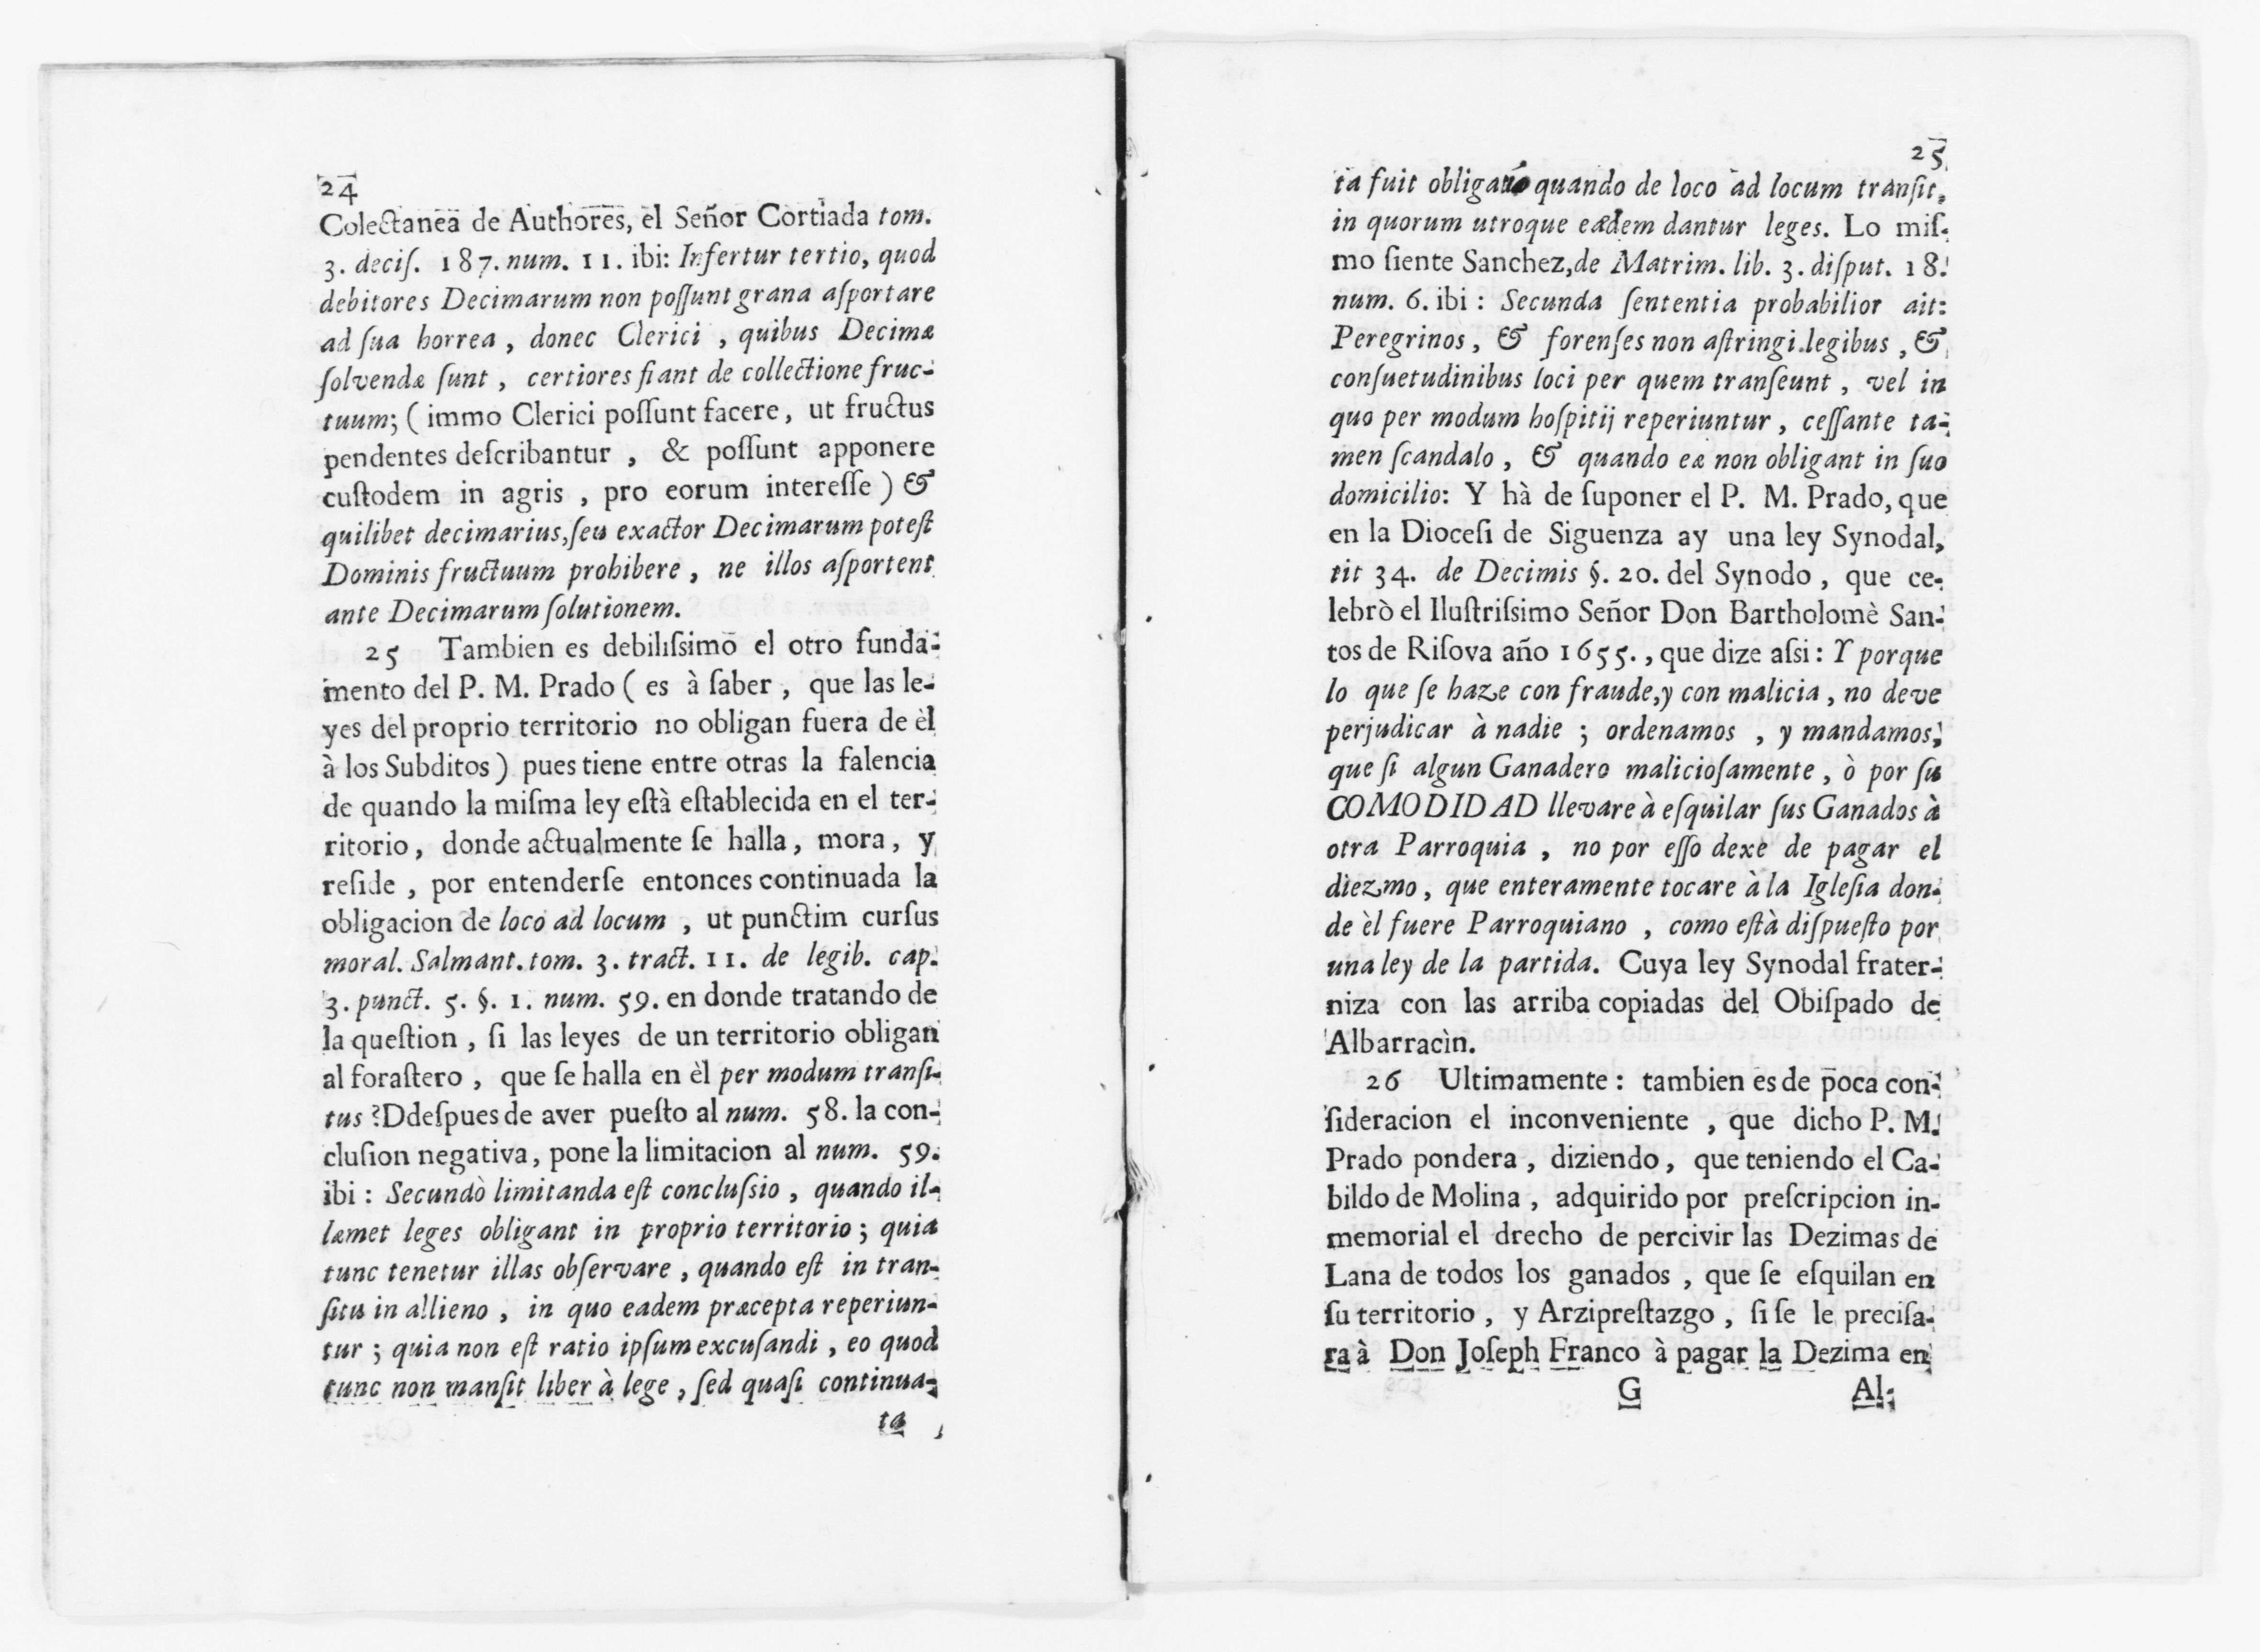 24
Colectanea de Authores, el Señor Cortiada tom.
3. deciſ. 187. num. 11. ibi: Infertur tertio, quod
debitores Decimarum non poſſunt grana aſportare
ad ſua horrea, donec Clerici, quibus Decimæ
ſolvendæ ſunt, certiores fiant de collectione fruc-
tuum; (immo Clerici poſſunt facere, ut fructus
pendentes deſcribantur, & poſſunt apponere
cuſtodem in agris, pro eorum intereſſe) &
quilibet decimarius, ſeu exactor Decimarum poteſt
Dominis fructuum prohibere, ne illos aſportent
ante Decimarum ſolutionem.
25 Tambien es debiliſsimo el otro funda-
mento del P. M. Prado (es à ſaber, que las le-
yes del proprio territorio no obligan fuera de èl
à los Subditos) pues tiene entre otras la falencia
de quando la miſma ley eſtà eſtablecida en el ter-
ritorio, donde actualmente ſe halla, mora, y
reſide, por entenderſe entonces continuada la
obligacion de loco ad locum, ut punctim curſus
moral. Salmant. tom. 3. tract. 11. de legib. cap.
3. punct. 5. §. 1. num. 59. en donde tratando de
la queſtion, ſi las leyes de un territorio obligan
al foraſtero, que ſe halla en èl per modum tranſi-
tus? Ddeſpues de aver pueſto al num. 58. la con-
cluſion negativa, pone la limitacion al num. 59.
ibi: Secundò limitanda eſt concluſsio, quando il-
læmet leges obligant in proprio territorio; quia
tunc tenetur illas obſervare, quando eſt in tran-
ſitu in allieno, in quo eadem præcepta reperiun-
tur; quia non eſt ratio ipſum excuſandi, eo quod
tunc non manſit liber à lege, ſed quaſi continua-
ta
25
ta fuit obligatio quando de loco ad locum tranſit,
in quorum utroque eædem dantur leges. Lo miſ-
mo ſiente Sanchez, de Matrim. lib. 3. diſput. 18.
num. 6. ibi: Secunda ſententia probabilior ait:
Peregrinos, & forenſes non aſtringi legibus, &
conſuetudinibus loci per quem tranſeunt, vel in
quo per modum hoſpitij reperiuntur, ceſſante ta-
men ſcandalo, & quando eæ non obligant in ſuo
domicilio: Y hà de ſuponer el P. M. Prado, que
en la Dioceſi de Siguenza ay una ley Synodal,
tit 34. de Decimis §. 20. del Synodo, que ce-
lebrò el Iluſtriſsimo Señor Don Bartholomè San-
tos de Riſova año 1655., que dize aſsi: Y porque
lo que ſe haze con fraude, y con malicia, no deve
perjudicar à nadie; ordenamos, y mandamos,
que ſi algun Ganadero malicioſamente, ò por ſu
COMODIDAD llevare à eſquilar ſus Ganados à
otra Parroquia, no por eſſo dexe de pagar el
diezmo, que enteramente tocare à la Igleſia don-
de èl fuere Parroquiano, como eſtà diſpueſto por
una ley de la partida. Cuya ley Synodal frater-
niza con las arriba copiadas del Obiſpado de
Albarracìn.
26 Ultimamente: tambien es de poca con-
ſideracion el inconveniente, que dicho P. M.
Prado pondera, diziendo, que teniendo el Ca-
bildo de Molina, adquirido por preſcripcion in-
memorial el drecho de percivir las Dezimas de
Lana de todos los ganados, que ſe eſquilan en
ſu territorio, y Arzipreſtazgo, ſi ſe le preciſa-
ra à Don Joſeph Franco à pagar la Dezima en
G Al-